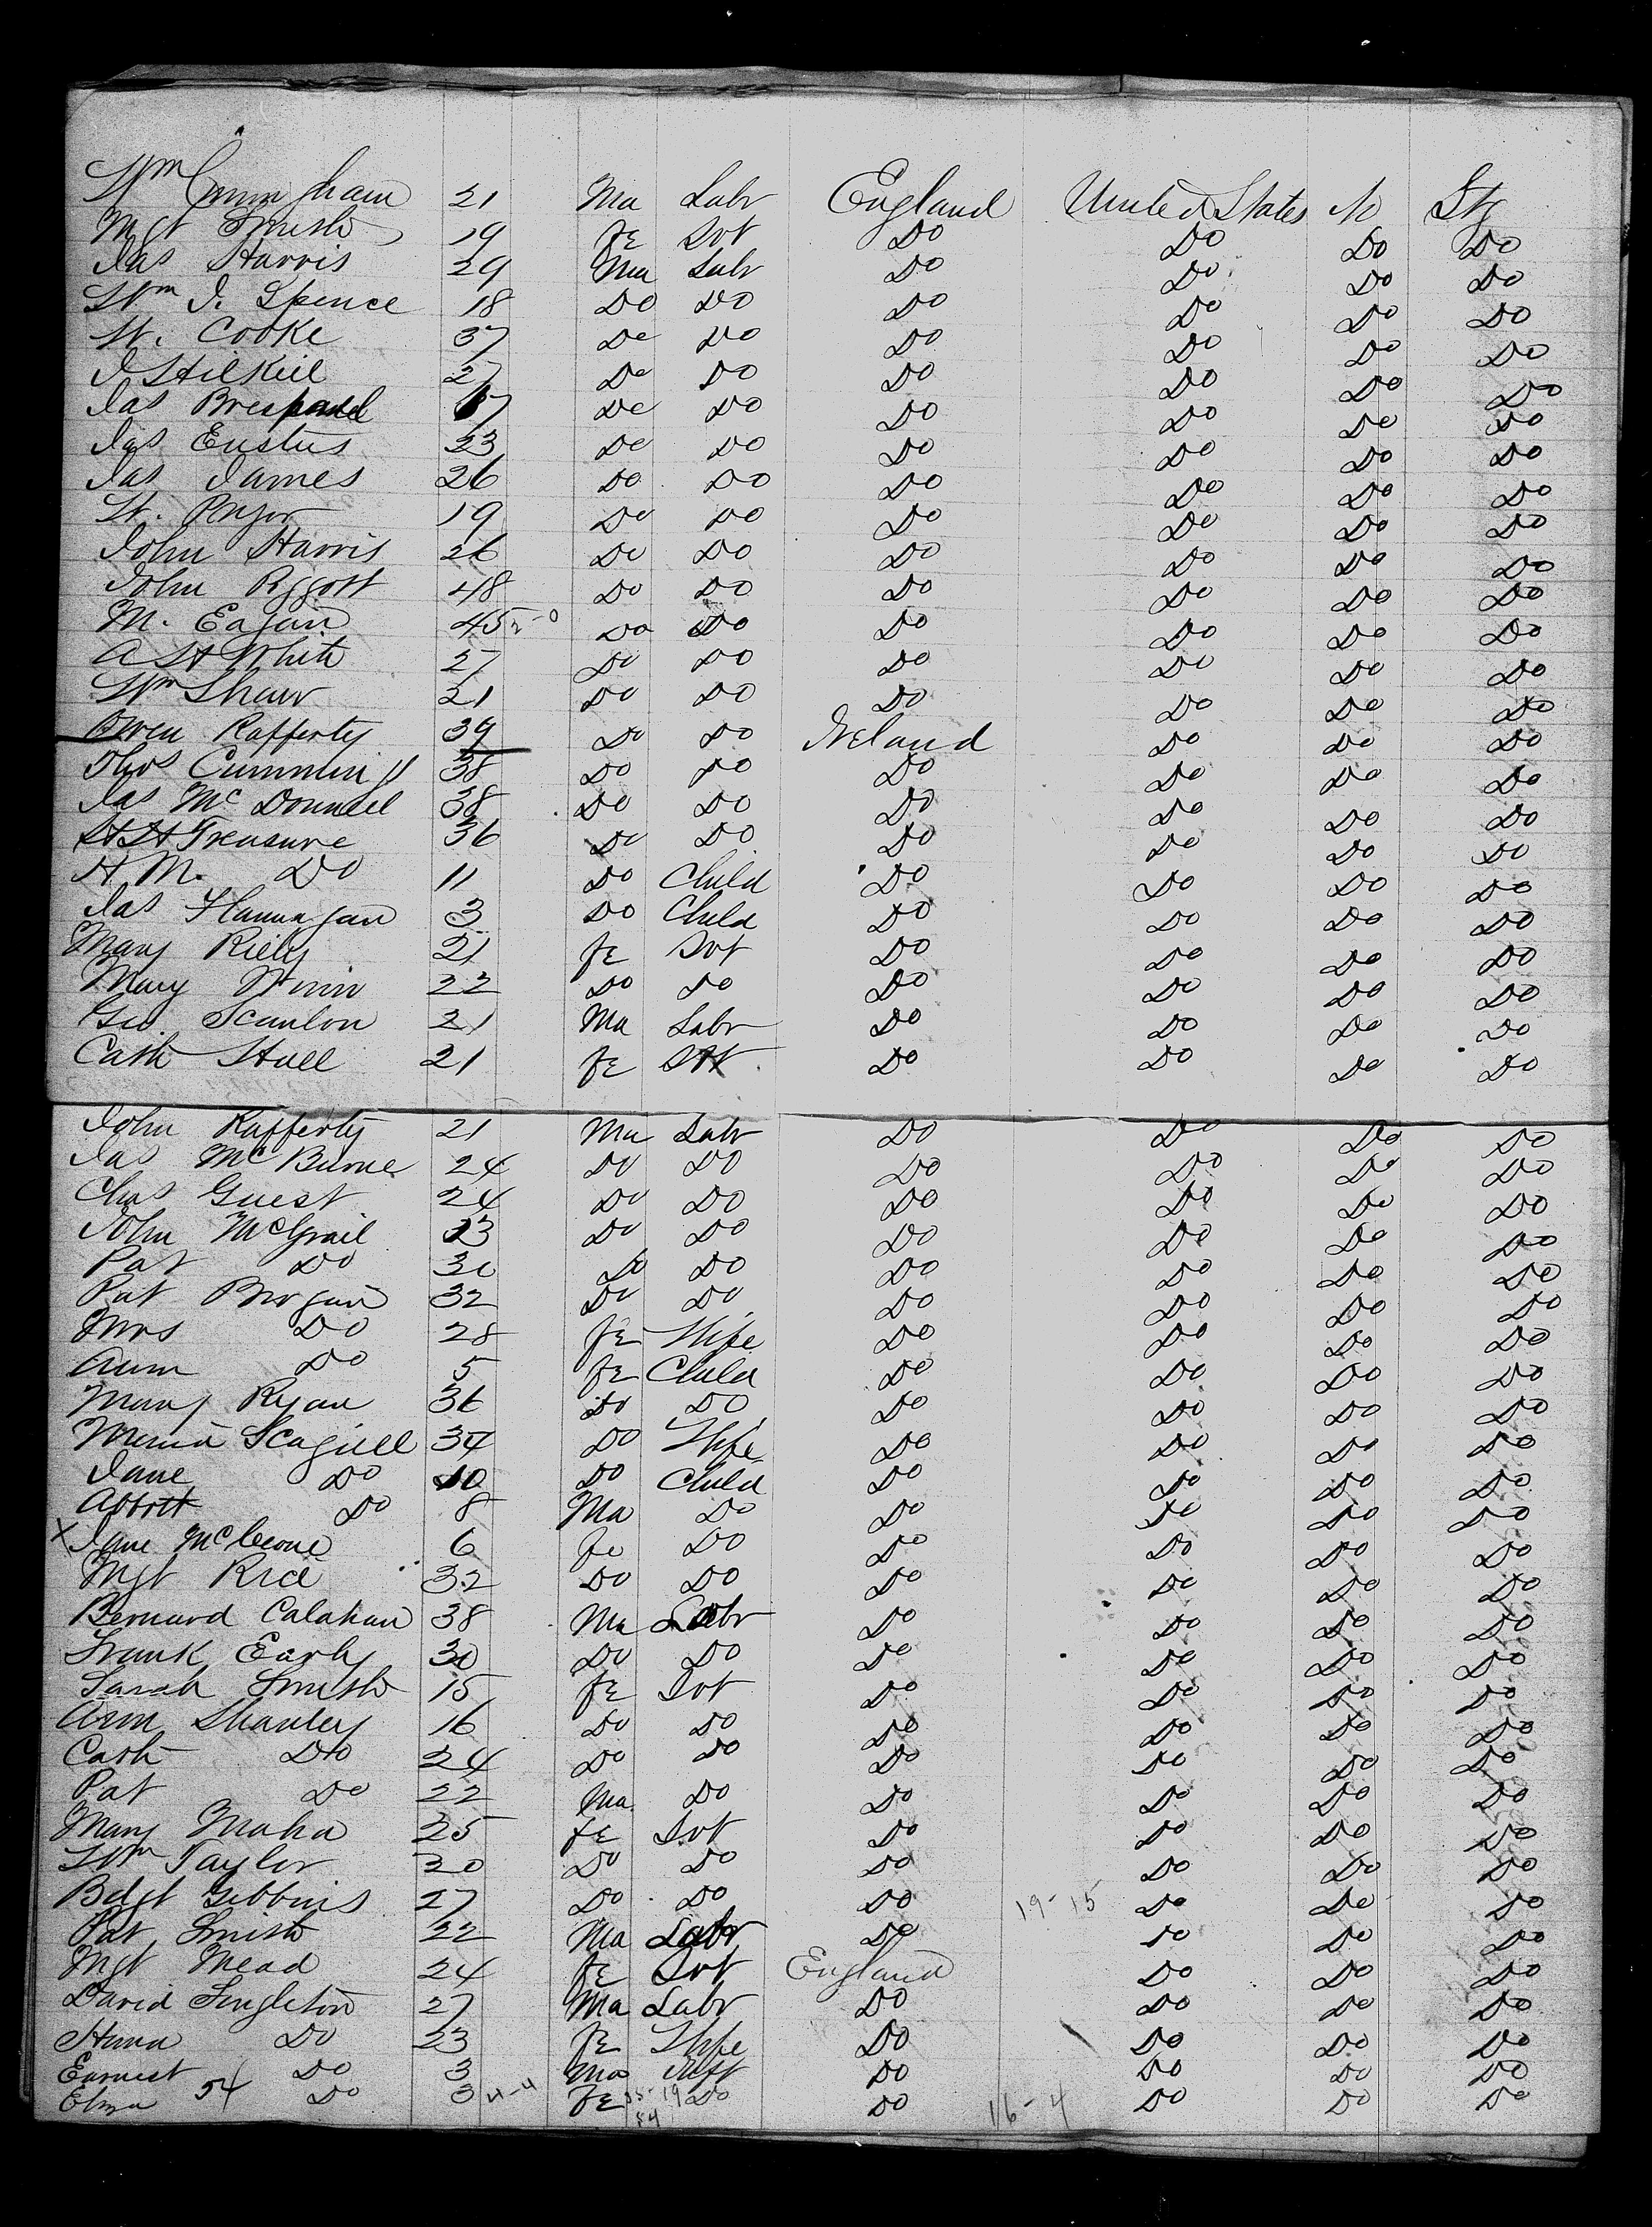 Wm Cunningham 21 Ma Labr England United States No Stg
Mgt Smith 19 fe Svt Do Do Do Do
Jas Harris 29 Ma Labr Do Do Do Do
Wm J. Spence 18 Do Do Do Do Do Do
W. Cooke 37 Do Do Do Do Do Do
J 27 Do Do Do Do Do Do
Jas 7 Do Do Do Do Do Do
Jas Eustus 23 Do Do Do Do Do Do
Jas James 26 Do Do Do Do Do Do
W. Pryor 19 Do Do Do Do Do Do
John Harris 26 Do Do Do Do Do Do
John Piggott 48 Do Do Do Do Do Do
M. Eagan 45 2-0 Do Do Do Do Do Do
A H White 27 Do Do Do Do Do Do
Wm Shaw 21 Do Do Do Do Do Do
Owen Rafferty 39 Do Do Ireland Do Do Do
Thos Cummings 38 Do Do Do Do Do Do
Jas McDonnell 38 Do Do Do Do Do Do
H H Treasure 36 Do Do Do Do Do Do
H. M. Do 11 Do Child Do Do Do Do
Jas Flannagan 3 Do Child Do Do Do Do
Mary Riely 21 fe Svt Do Do Do Do
Mary 22 Do Do Do Do Do Do
Geo. Scanlon 21 Ma Labr Do Do Do Do
Cath Hall 21 fe Svt Do Do Do Do
John Rafferty 21 Ma Labr Do Do Do Do
Jas McBurne 24 Do Do Do Do Do Do
Chas Guest 24 Do Do Do Do Do Do
John McGrail 23 Do Do Do Do Do Do
Pat Do 30 Do Do Do Do Do Do
Pat Brogan 32 Do Do Do Do Do Do
Mrs Do 28 fe Wife Do Do Do Do
Ann Do 5 fe Child Do Do Do Do
Mary Ryan 36 Do Do Do Do Do Do
Maria Scagill 34 Do Wife Do Do Do Do
Jane Do 10 Do Child Do Do Do Do
Abbott Do 8 Ma Do Do Do Do Do
x Jane 6 fe Do Do Do Do Do
Mgt Rice 32 Do Do Do Do Do Do
Bernard Calahan 38 Ma Labr Do Do Do Do
Frank Early 30 Do Do Do Do Do Do
Sarah Smith 15 fe Svt Do Do Do Do
Ann Shanley 16 Do Do Do Do Do Do
Cath Do 24 Do Do Do Do Do Do
Pat Do 22 Ma Do Do Do Do Do
Mary Maha 25 fe Svt Do Do Do Do
Wm Taylor 20 Do Do Do Do Do Do
Bdgt Gibbins 27 Do Do Do 19-15 Do Do Do
Pat Smith 22 Ma Labr Do Do Do Do
Mgt Mead 24 fe Svt England Do Do Do
David Singleton 27 Ma Labr Do Do Do Do
Hana Do 23 fe Wife Do Do Do Do
Earnest Do 3 Ma Inft Do Do Do Do
Eliza 54 Do 3 4-4 fe 35-19 Do Do 16-4 Do Do Do
84